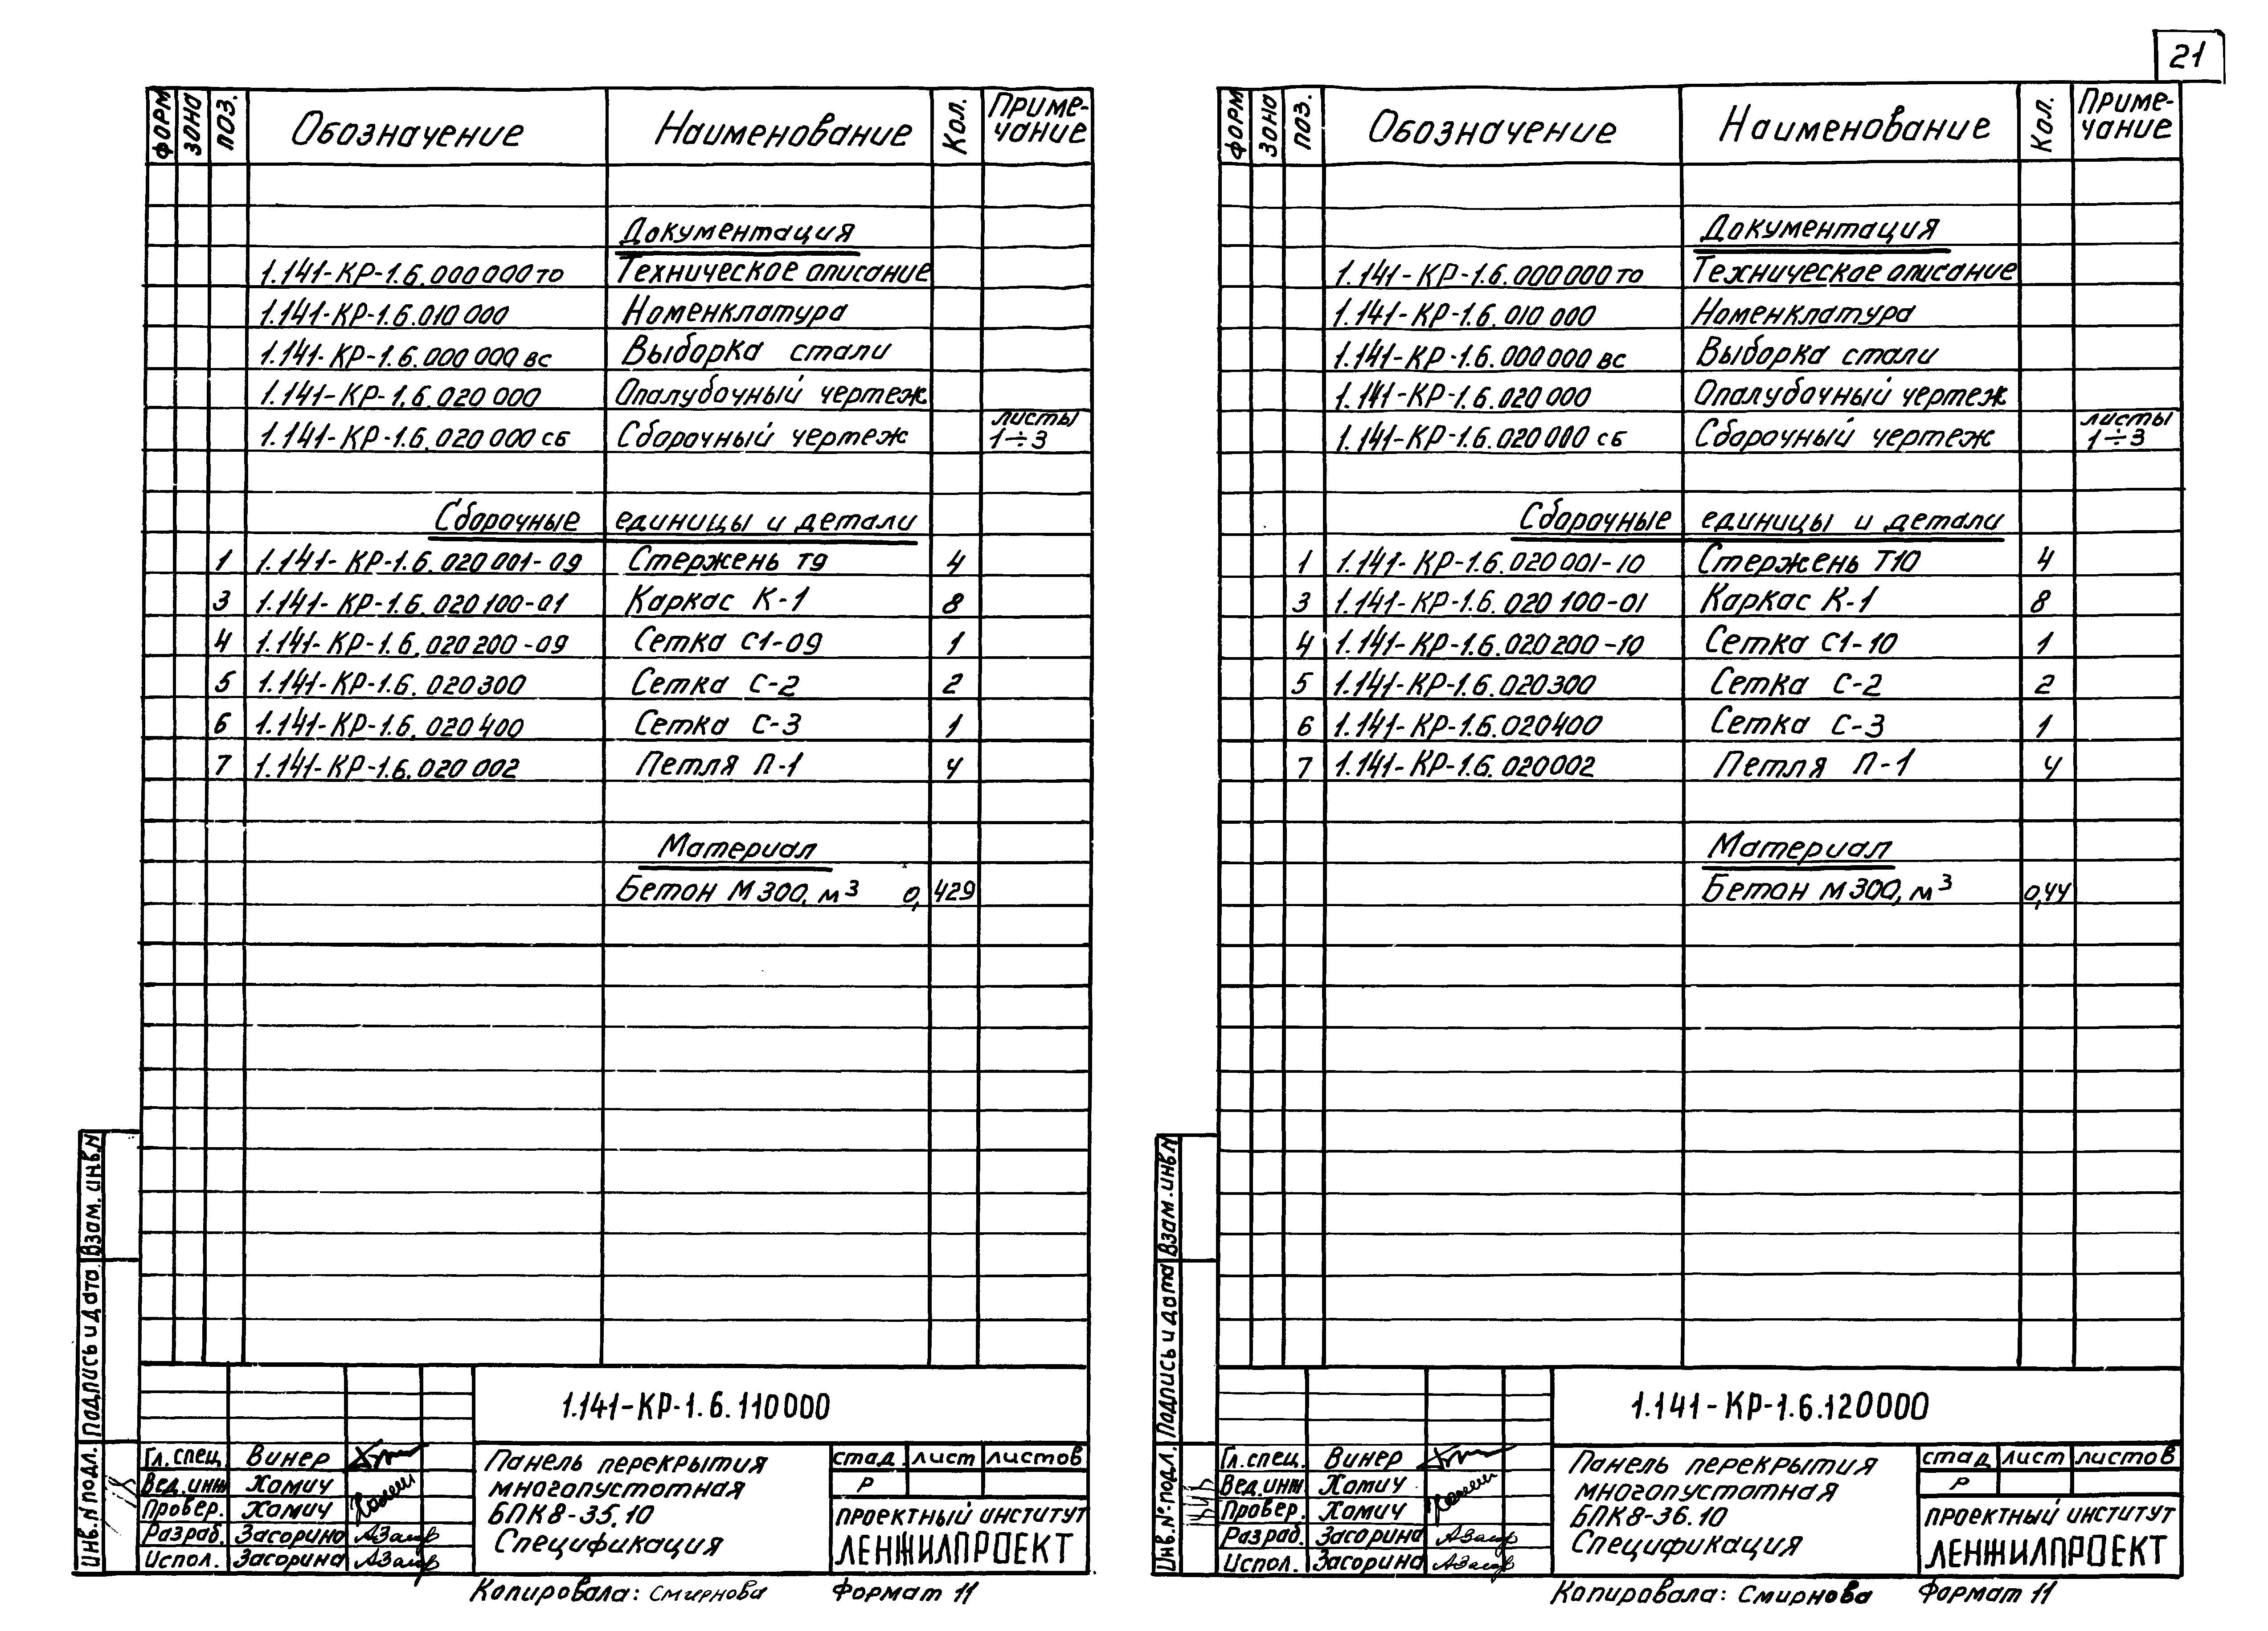 21
ФОРМ ЗОНА ПОЗ. Обозначение Наименование Кол. Приме-
чание
Документация
1.141-КР-1.6.000000то Техническое описание
1.141-КР-1.6.010 000 Номенклатура
1.141-КР-1.6.000 000 вс Выборка стали
1.141-КР-1.6.020 000 Опалубочный чертеж
листы
1.141-КР-1.6.020 000 сб Сборочный чертеж 1÷3
Сборочные единицы и детали
1 1.141-КР-1.6.020 001-09 Стержень т9 4
3 1.141-КР-1.6.020 100-01 Каркас К-1 8
4 1.141-КР-1.6.020 200-09 Сетка С1-09 1
5 1.141-КР-1.6.020300 Сетка С-2 2
6 1.141-КР-1.6.020 400 Сетка С-3 1
7 1.141-КР-1.6.020 002 Петля П-1 4
Материал
Бетон М300, м³ 0,429
Инв.№подл. Подпись и дата. Взам.инв.N
1.141-КР-1.6.110000
Гл.спец. Винер
Вед.инж Хамич
Провер. Хамич
Разраб. Засорина
Испол. Засорина
Панель перекрытия
многопустотная
БПК8-35.10
Спецификация
стад. лист листов
Р
ПРОЕКТНЫЙ ИНСТИТУТ
ЛЕНЖИЛПРОЕКТ
Копировала: Смирнова Формат 11
ФОРМ ЗОНА ПОЗ. Обозначение Наименование Кол. Приме-
чание
Документация
1.141-КР-1.6.000000то Техническое описание
1.141-КР-1.6.010 000 Номенклатура
1.141-КР-1.6.000 000 вс Выборка стали
1.141-КР-1.6.020 000 Опалубочный чертеж
листы
1.141-КР-1.6.020 000 сб Сборочный чертеж 1÷3
Сборочные единицы и детали
1 1.141-КР-1.6.020 001-10 Стержень Т10 4
3 1.141-КР-1.6.020 100-01 Каркас К-1 8
4 1.141-КР-1.6.020200-10 Сетка С1-10 1
5 1.141-КР-1.6.020300 Сетка С-2 2
6 1.141-КР-1.6.020400 Сетка С-3 1
7 1.141-КР-1.6.020002 Петля П-1 4
Материал
Бетон М300, м³ 0,44
Инв.№подл. Подпись и дата Взам.инв.N
1.141-КР-1.6.120000
Гл.спец. Винер
Вед.инж Хамич
Провер. Хамич
Разраб. Засорина
Испол. Засорина
Панель перекрытия
многопустотная
БПК8-36.10
Спецификация
стад лист листов
Р
ПРОЕКТНЫЙ ИНСТИТУТ
ЛЕНЖИЛПРОЕКТ
Копировала: Смирнова Формат 11